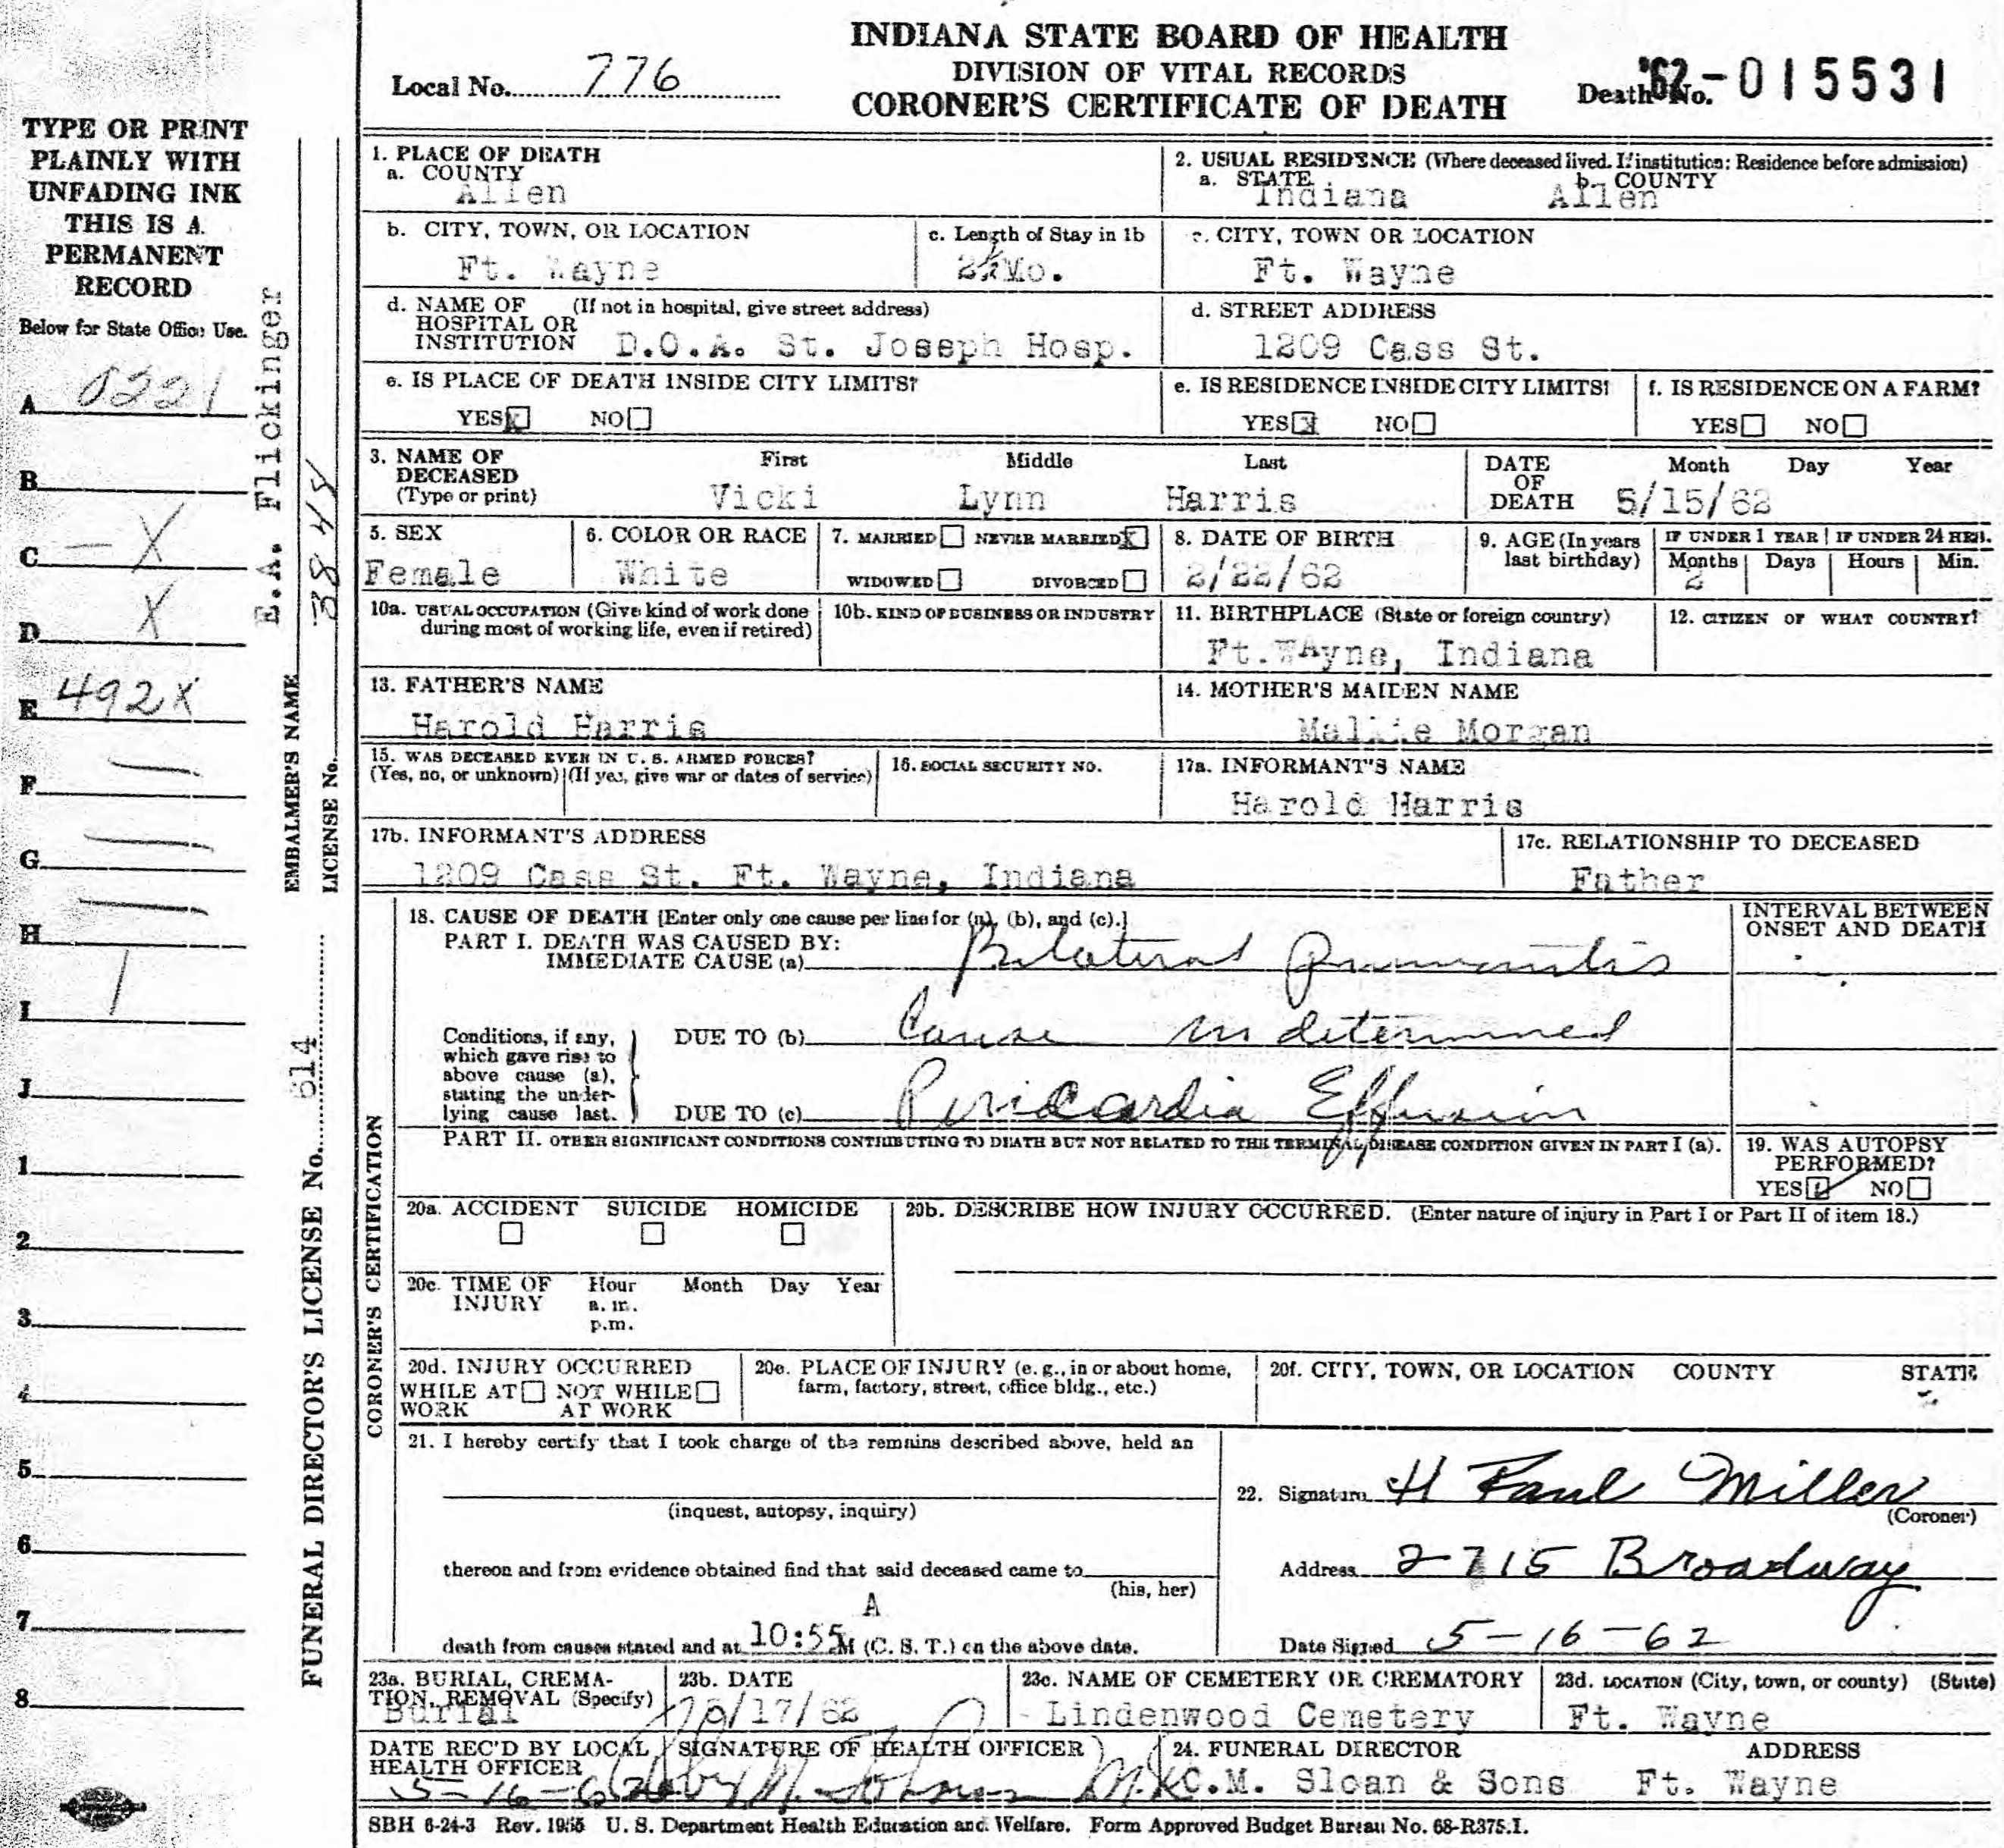 INDIANA STATE BOARD OF HEALTH
DIVISION OF VITAL RECORDS
CORONER'S CERTIFICATE OF DEATH
Local No. 776
Death No. '62-015531
TYPE OR PRINT
PLAINLY WITH
UNFADING INK
THIS IS A
PERMANENT
RECORD
Below for State Office Use.
A
B
C - X
D X
E 492X
F
G
H
I
J
1
2
3
4
5
6
7
8
EMBALMER'S NAME E.A. Flickinger
LICENSE No. 3848
FUNERAL DIRECTOR'S LICENSE No. 614
1. PLACE OF DEATH
a. COUNTY
Allen
2. USUAL RESIDENCE (Where deceased lived. If institution: Residence before admission)
a. STATE b. COUNTY
Indiana Allen
b. CITY, TOWN, OR LOCATION
Ft. Wayne
c. Length of Stay in 1b
2½Mo.
c. CITY, TOWN OR LOCATION
Ft. Wayne
d. NAME OF (If not in hospital, give street address)
HOSPITAL OR
INSTITUTION D.O.A. St. Joseph Hosp.
d. STREET ADDRESS
1209 Cass St.
e. IS PLACE OF DEATH INSIDE CITY LIMITS?
YES X NO
e. IS RESIDENCE INSIDE CITY LIMITS?
YES X NO
f. IS RESIDENCE ON A FARM?
YES NO
3. NAME OF First Middle Last
DECEASED
(Type or print) Vicki Lynn Harris
DATE Month Day Year
OF
DEATH 5/15/62
5. SEX
Female
6. COLOR OR RACE
White
7. MARRIED NEVER MARRIED X
WIDOWED DIVORCED
8. DATE OF BIRTH
2/22/62
9. AGE (In years
last birthday)
IF UNDER 1 YEAR IF UNDER 24 HRS.
Months Days Hours Min.
2
10a. USUAL OCCUPATION (Give kind of work done
during most of working life, even if retired)
10b. KIND OF BUSINESS OR INDUSTRY
11. BIRTHPLACE (State or foreign country)
Ft.WAyne, Indiana
12. CITIZEN OF WHAT COUNTRY?
13. FATHER'S NAME
Harold Harris
14. MOTHER'S MAIDEN NAME
Mallie Morgan
15. WAS DECEASED EVER IN U. S. ARMED FORCES?
(Yes, no, or unknown) (If yes, give war or dates of service)
16. SOCIAL SECURITY NO.
17a. INFORMANT'S NAME
Harold Harris
17b. INFORMANT'S ADDRESS
1209 Cass St. Ft. Wayne, Indiana
17c. RELATIONSHIP TO DECEASED
Father
CORONER'S CERTIFICATION
18. CAUSE OF DEATH [Enter only one cause per line for (a), (b), and (c).]
PART I. DEATH WAS CAUSED BY:
IMMEDIATE CAUSE (a) Bilateral pneumonitis
INTERVAL BETWEEN
ONSET AND DEATH
Conditions, if any,
which gave rise to
above cause (a),
stating the under-
lying cause last.
DUE TO (b) Cause undetermined
DUE TO (c) Pericardia Effusion
PART II. OTHER SIGNIFICANT CONDITIONS CONTRIBUTING TO DEATH BUT NOT RELATED TO THE TERMINAL DISEASE CONDITION GIVEN IN PART I (a).
19. WAS AUTOPSY
PERFORMED?
YES NO
20a. ACCIDENT SUICIDE HOMICIDE
20b. DESCRIBE HOW INJURY OCCURRED. (Enter nature of injury in Part I or Part II of item 18.)
20c. TIME OF Hour Month Day Year
INJURY a. m.
p.m.
20d. INJURY OCCURRED
WHILE AT NOT WHILE
WORK AT WORK
20e. PLACE OF INJURY (e. g., in or about home,
farm, factory, street, office bldg., etc.)
20f. CITY, TOWN, OR LOCATION COUNTY STATE
21. I hereby certify that I took charge of the remains described above, held an
(inquest, autopsy, inquiry)
thereon and from evidence obtained find that said deceased came to
(his, her)
A
death from causes stated and at 10:55 M (C. S. T.) on the above date.
22. Signature H Paul Miller
(Coroner)
Address 2715 Broadway
Date Signed 5-16-62
23a. BURIAL, CREMA-
TION, REMOVAL (Specify)
Burial
23b. DATE
5/17/62
23c. NAME OF CEMETERY OR CREMATORY
Lindenwood Cemetery
23d. LOCATION (City, town, or county) (State)
Ft. Wayne
DATE REC'D BY LOCAL
HEALTH OFFICER
5-16-62
SIGNATURE OF HEALTH OFFICER
24. FUNERAL DIRECTOR ADDRESS
C.M. Sloan & Sons Ft. Wayne
SBH 6-24-3 Rev. 1955 U. S. Department Health Education and Welfare. Form Approved Budget Bureau No. 68-R375.1.